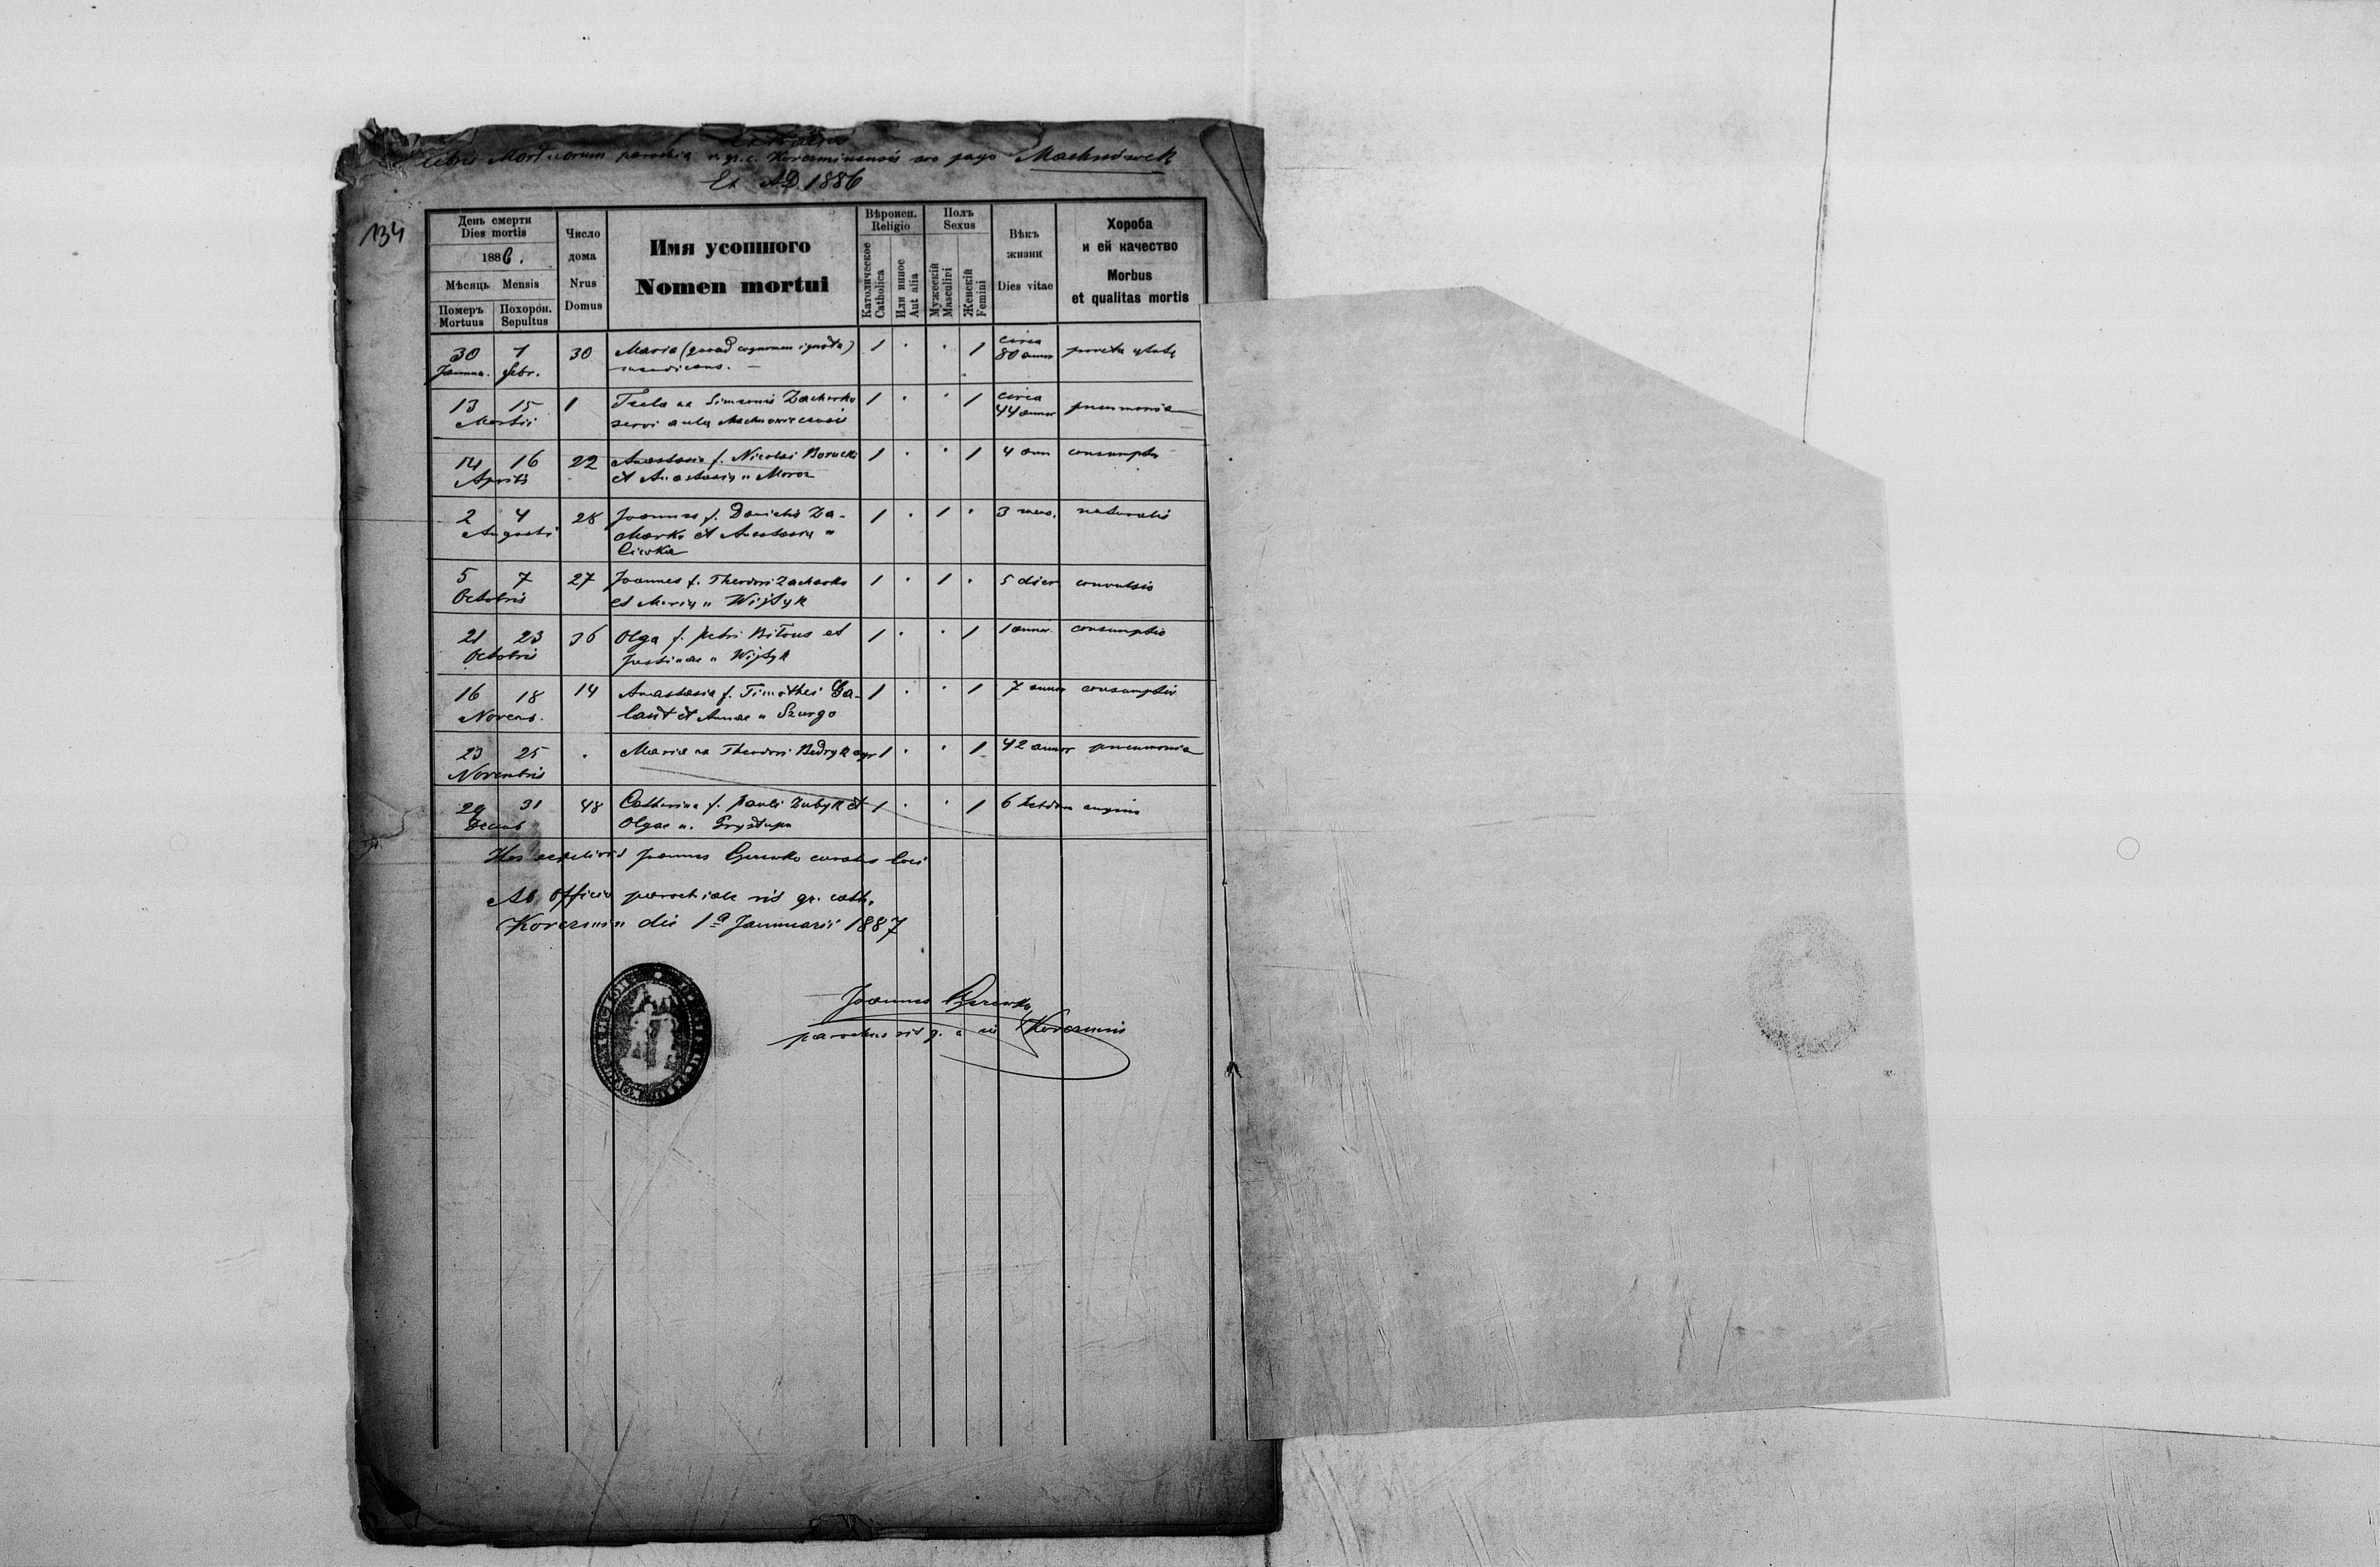 Extractus
libris Mortuorum parochia r. gr. c. Korczminensis pro pago Machnówek
Ex AD. 1886
134
День смерти
Dies mortis
1886.
Мѣсяць Mensis
Померъ Похорон.
Mortuus Sepultus
Число
дома
Nrus
Domus
Имя усопшого
Nomen mortui
Вѣроисп.
Religio
Католическое
Catholica
Или инное
Aut alia
Полъ
Sexus
Мужескій
Masculini
Женскій
Femini
Вѣкъ
жизни
Dies vitae
Хороба
и ей качество
Morbus
et qualitas mortis
30 1 30 Maria (quoad cognomen ignota) 1 . . 1 circa
Januar. febr. mendicans. — 80 annor
13 15 1 Simeonis Zacharko 1 . . 1 circa
Martii servi aulę 44 annor pneumonia
14 16 22 Anastasia f. Nicolai Borucki 1 . . 1 4 ann consumptio
Aprilis et Anastasię n Moroz
2 4 28 Joannes f. Danielis Za- 1 . 1 . 3 mens. naturalis
Augusti charko et Anastasię n
5 7 27 Joannes f. Theodori Zacharko 1 . 1 . 5 dier convulsio
Octobris et Marię n Wijtyk
21 23 36 Olga f. Petri Bilous et 1 . . 1 1 annor. consumptio
Octobris Justinae n Wijtyk
16 18 14 Anastasia f. Timothei Ga- 1 . . 1 7 annor consumptio
Novemb. lant et Annae n Szurgo
23 25 . Maria ux Theodori Bedryk agr 1 . . 1 42 annor pneumonia
Novembris
29 31 48 Catharina f. Pauli Zubyk et 1 . . 1 6 hebdom angina
Decemb Olgae n. Prystupa
Hos sepelivit Joannes curatus loci
Ab officio parochiale rit gr. cath.
Korczmin die 1ª Januarii 1887
Joannes
parochus rit g. c in Korczmin